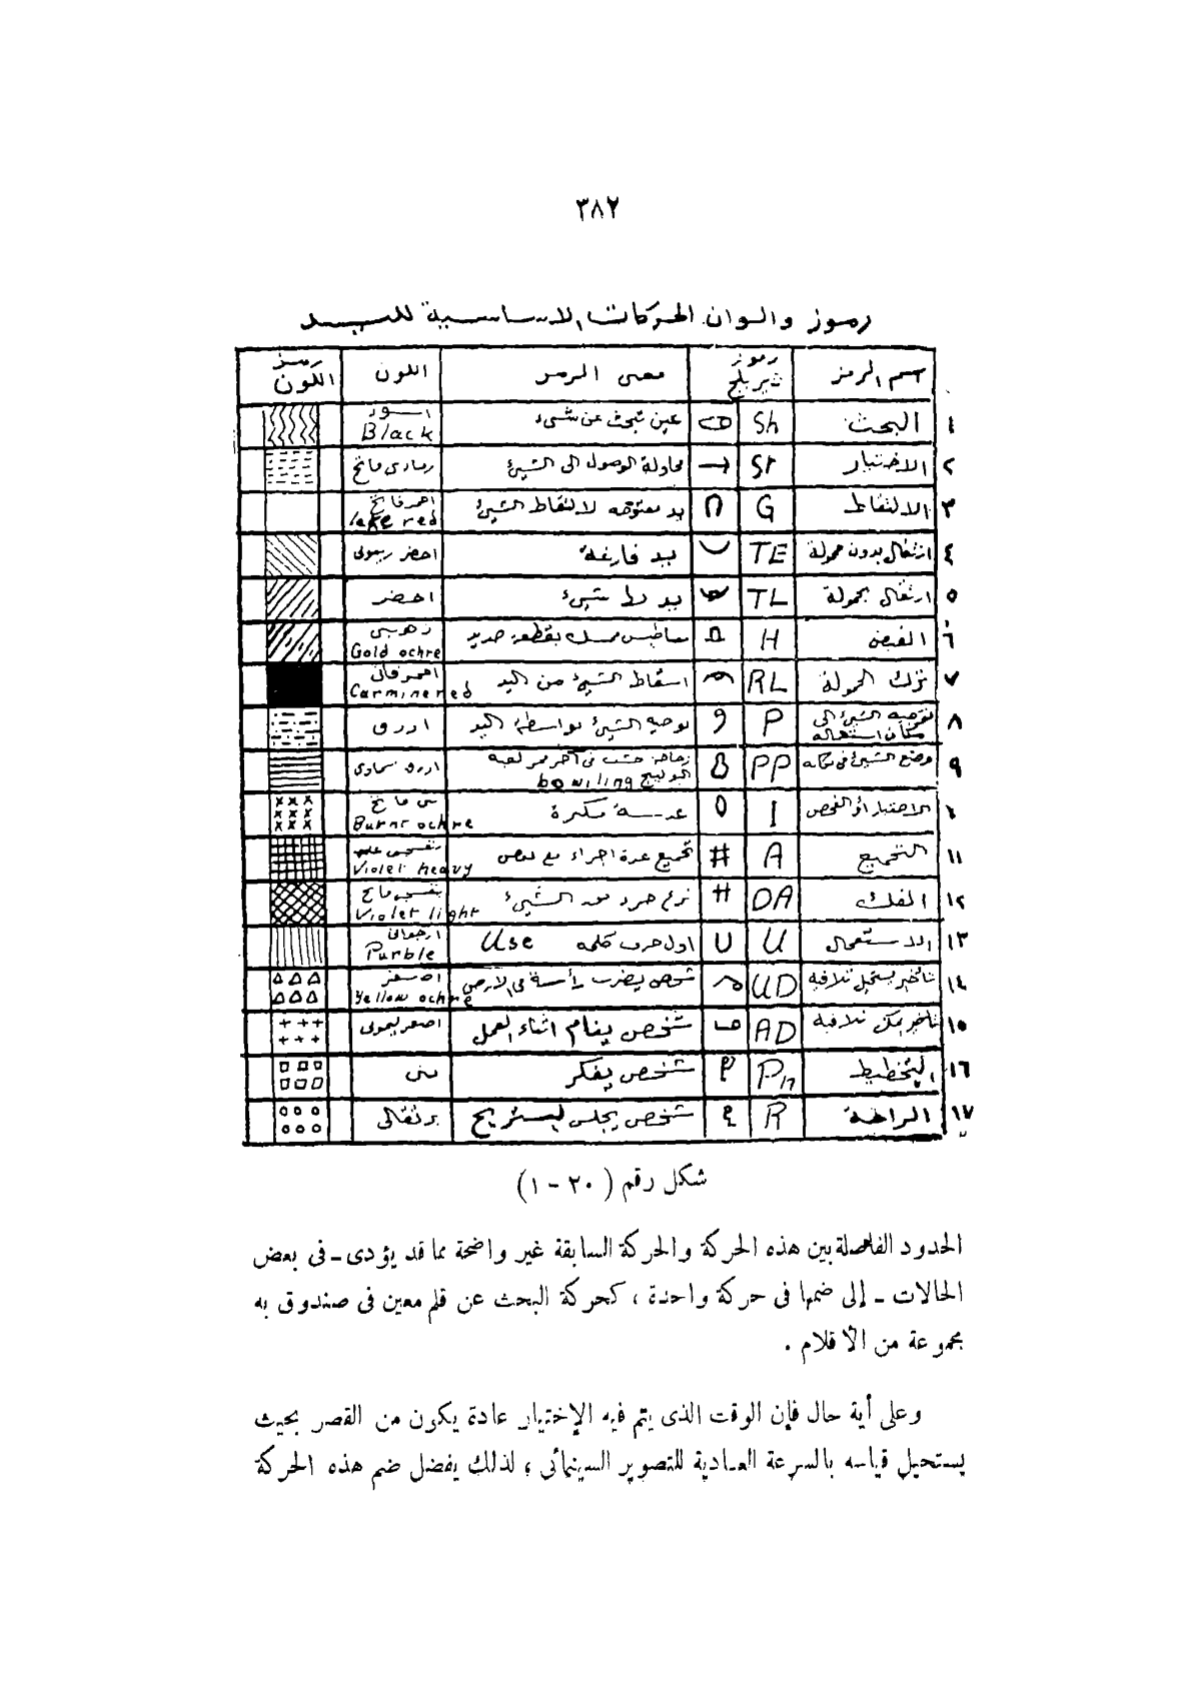 ٣٨٢
رموز والوان الحركات الاساسية لليد
اسم الرمز رموز ثيربلج معنى الرمز اللون رمز اللون
١ البحث Sh عين تبحث عن شىء اسود Black
٢ الاختيار St محاولة الوصول الى الشيئ رمادى فاتح
٣ الالتقاط G يد مفتوحه لالتقاط الشيئ احمر فاتح lake red
٤ انتقال بدون حمولة TE يد فارغة اخضر زيتونى
٥ انتقال بحمولة TL يد بها شيئ اخضر
٦ القبض H مغناطيس ممسك بقطعة حديد ذهبى Gold ochre
٧ ترك الحمولة RL اسقاط الشيئ من اليد احمر قانى Carmine red
٨ توجيه الشيئ الى مكان استعماله P توجيه الشيئ بواسطة اليد ازرق
٩ وضع الشيئ فى مكانه PP زجاجة خشب فى آخر ممر لعبه البولينج bowiling ازرق سماوى
١٠ الاختبار أو الفحص I عدسة مكبرة بنى فاتح Burnt ochre
١١ التجميع # A تجميع عدة اجزاء مع بعض بنفسجى Violet heavy
١٢ الفك DA نزع جزء من الشيئ بنفسجى فاتح Violet light
١٣ الاستعمال U U اول حرف كلمه Use ارجوانى Purble
١٤ تأخير يستحيل تلافيه UD شخص يضرب رأسه فى الارض اصفر Yellow ochre
١٥ تأخير يمكن تلافيه AD شخص ينام اثناء العمل اصفر ليمونى
١٦ التخطيط Pn شخص يفكر بنى
١٧ الراحة R شخص يجلس ليستريح برتقالى
شكل رقم ( ٢٠ - ١ )
الحدود الفاصلة بين هذه الحركة والحركة السابقة غير واضحة مما قد يؤدى ـ فى بعض
الحالات ـ إلى ضمها فى حركة واحدة ، كحركة البحث عن قلم معين فى صندوق به
مجموعة من الأقلام .
وعلى أية حال فإن الوقت الذى يتم فيه الإختيار عادة يكون من القصر بحيث
يستحيل قياسه بالسرعة العادية للتصوير السينمائى ؛ لذلك يفضل ضم هذه الحركة